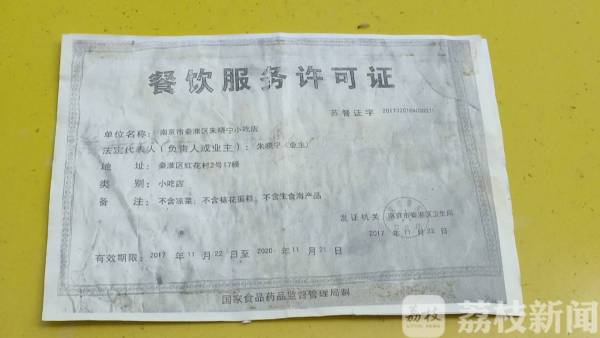 餐饮服务许可证
苏餐证字
单位名称：南京市秦淮区朱晓宁小吃店
法定代表人（负责人或业主）：朱晓宁（业主）
地 址：秦淮区红花村2号17幢
类 别：小吃店
备 注：不含凉菜；不含裱花蛋糕；不含生食海产品
发证机关：南京市秦淮区卫生局
2017 年 11 月 22 日
有效期限：2017 年 11 月 22 日至 2020 年 11 月 21 日
国家食品药品监督管理局制
荔枝 荔枝新闻